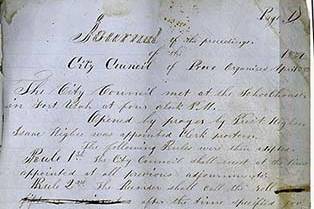 Page 1
Journal
of the proceedings of the
City Council of Provo Organized April
The City Council met at the Schoolhouse
in Fort Utah at four oclock P.M.
Opened by prayer by Prest Higbee
Isaac Higbee was appointed Clerk protem
The following Rules were then adopted.
Rule 1st The City Council shall meet at the time
appointed at all previous adjournments.
Rule 2nd The Recorder shall call the roll
after the time specified for